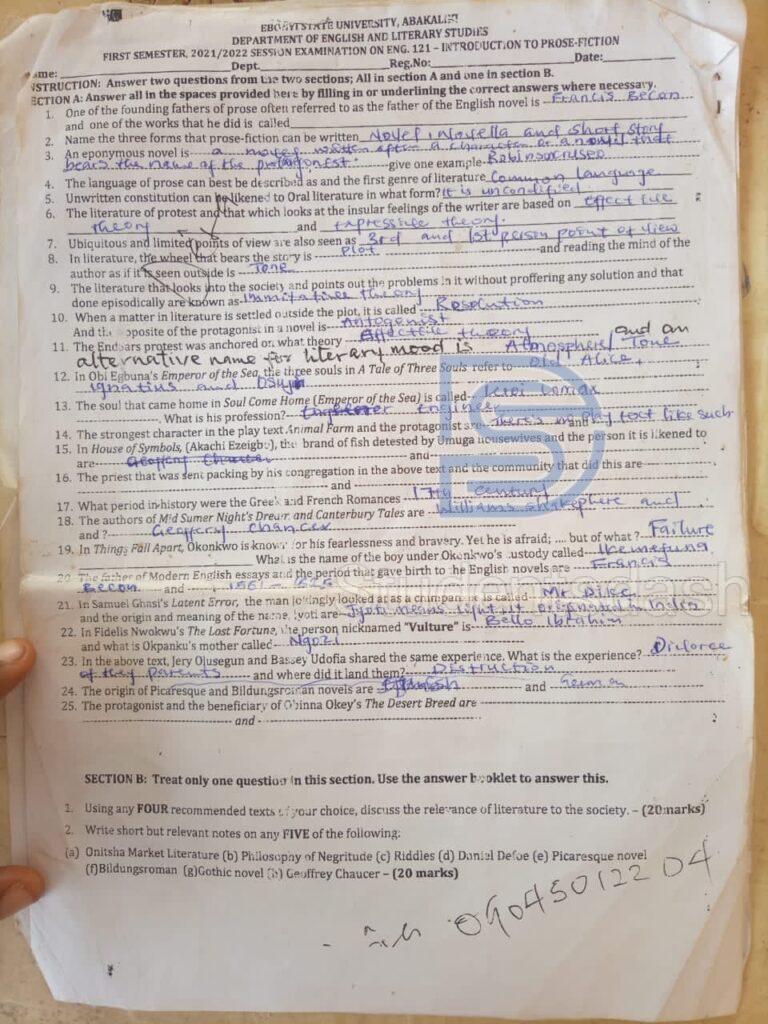 EBONYI STATE UNIVERSITY, ABAKALIKI
DEPARTMENT OF ENGLISH AND LITERARY STUDIES
FIRST SEMESTER, 2021/2022 SESSION EXAMINATION ON ENG. 121 – INTRODUCTION TO PROSE-FICTION
Name: Dept. Reg.No: Date:
INSTRUCTION: Answer two questions from the two sections; All in section A and one in section B.
SECTION A: Answer all in the spaces provided here by filling in or underlining the correct answers where necessary.
1. One of the founding fathers of prose often referred to as the father of the English novel is Francis Becon
and one of the works that he did is called
2. Name the three forms that prose-fiction can be written Novel, Novella and short story
3. An eponymous novel is a novel written after a character or a novel that
bears the name of the protagonest. give one example- Robinsoncrusoe
4. The language of prose can best be described as and the first genre of literature Common language
5. Unwritten constitution can be likened to Oral literature in what form? It is uncodified.
6. The literature of protest and that which looks at the insular feelings of the writer are based on effective
theory and expressive theory.
7. Ubiquitous and limited points of view are also seen as 3rd and 1st person point of view
8. In literature, the wheel that bears the story is Plot and reading the mind of the
author as if it is seen outside is Tone
9. The literature that looks into the society and points out the problems in it without proffering any solution and that
done episodically are known as Immitative theory
10. When a matter in literature is settled outside the plot, it is called Resolution
And the opposite of the protagonist in a novel is Antogonist
11. The Endsars protest was anchored on what theory Affective theory and an
alternative name for literary mood is Atmosphere/Tone
12. In Obi Egbuna's Emperor of the Sea, the three souls in A Tale of Three Souls refer to Old Alice,
Ignatius and Osuji
13. The soul that came home in Soul Come Home (Emperor of the Sea) is called
What is his profession? Engineer
14. The strongest character in the play text Animal Farm and the protagonist are There's no play text like such
15. In House of Symbols, (Akachi Ezeigbo), the brand of fish detested by Umuga housewives and the person it is likened to
are Geoffery Chaucer and
16. The priest that was sent packing by his congregation in the above text and the community that did this are
and
17. What period in history were the Greek and French Romances 17th century
18. The authors of Mid Sumer Night's Dream and Canterbury Tales are Williams shakephere and
and ? Geoffery chancer
19. In Things Fall Apart, Okonkwo is known for his fearlessness and bravery. Yet he is afraid; .... but of what ? Failure
What is the name of the boy under Okonkwo's custody called Ikemefuna
20. The father of Modern English essays and the period that gave birth to the English novels are Francis
Becon and
21. In Samuel Ghasi's Latent Error, the man jokingly looked at as a chimpanzee is called Mr. Dike
and the origin and meaning of the name Jyoti are Jyoti means light, it originated in India
22. In Fidelis Nwokwu's The Lost Fortune, the person nicknamed "Vulture" is Bello Ibrahim
and what is Okpanku's mother called Ngozi
23. In the above text, Jery Olusegun and Bassey Udofia shared the same experience. What is the experience? Divorce
of they parents and where did it land them? Distruction
24. The origin of Picaresque and Bildungsroman novels are Spanish and German
25. The protagonist and the beneficiary of Obinna Okey's The Desert Breed are
and
SECTION B: Treat only one question in this section. Use the answer booklet to answer this.
1. Using any FOUR recommended texts of your choice, discuss the relevance of literature to the society. – (20marks)
2. Write short but relevant notes on any FIVE of the following:
(a) Onitsha Market Literature (b) Philosophy of Negritude (c) Riddles (d) Daniel Defoe (e) Picaresque novel
(f)Bildungsroman (g)Gothic novel (h) Geoffrey Chaucer – (20 marks)
09045012204